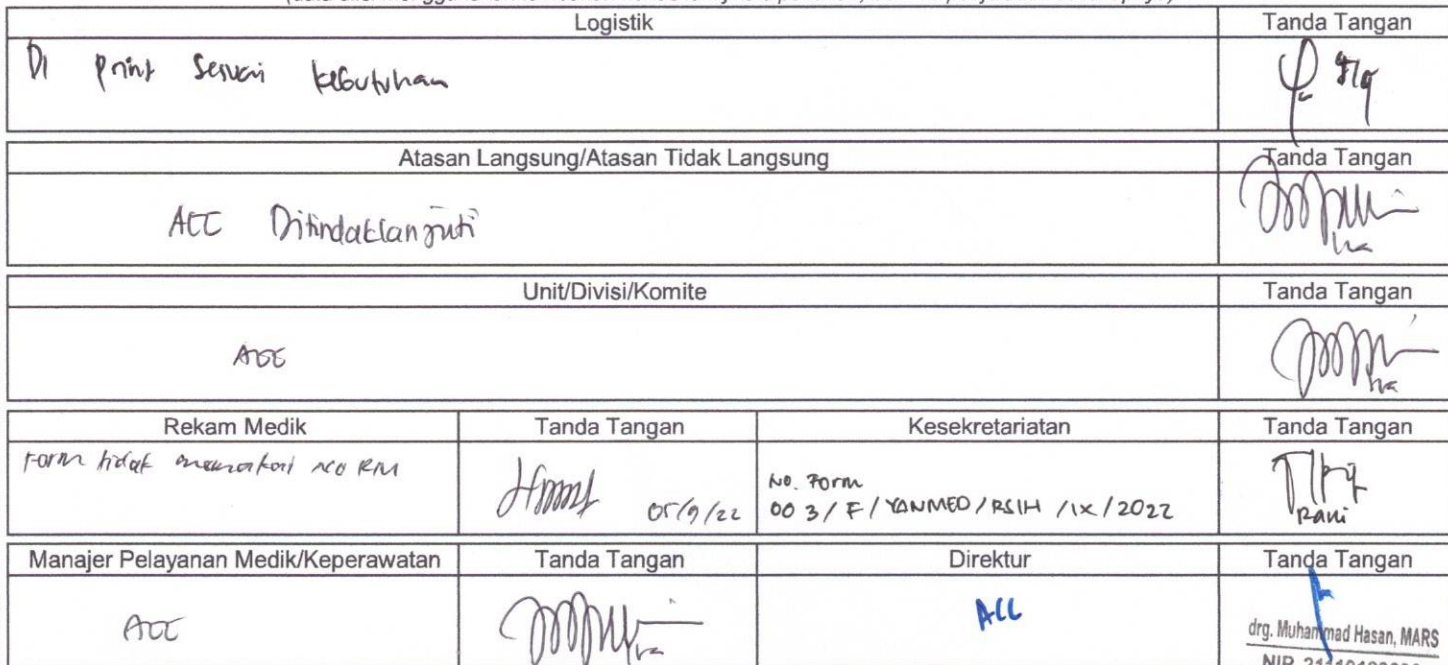 Logistik Tanda Tangan
Di print sesuai kebutuhan
Atasan Langsung/Atasan Tidak Langsung Tanda Tangan
ACC Ditindaklanjuti
Unit/Divisi/Komite Tanda Tangan
ACC
Rekam Medik Tanda Tangan Kesekretariatan Tanda Tangan
Form tidak memakai No RM
05/9/22
No. Form
003/F/YANMED/RSIH/IX/2022
Rani
Manajer Pelayanan Medik/Keperawatan Tanda Tangan Direktur Tanda Tangan
ACC
ACC
drg. Muhammad Hasan, MARS
NIP